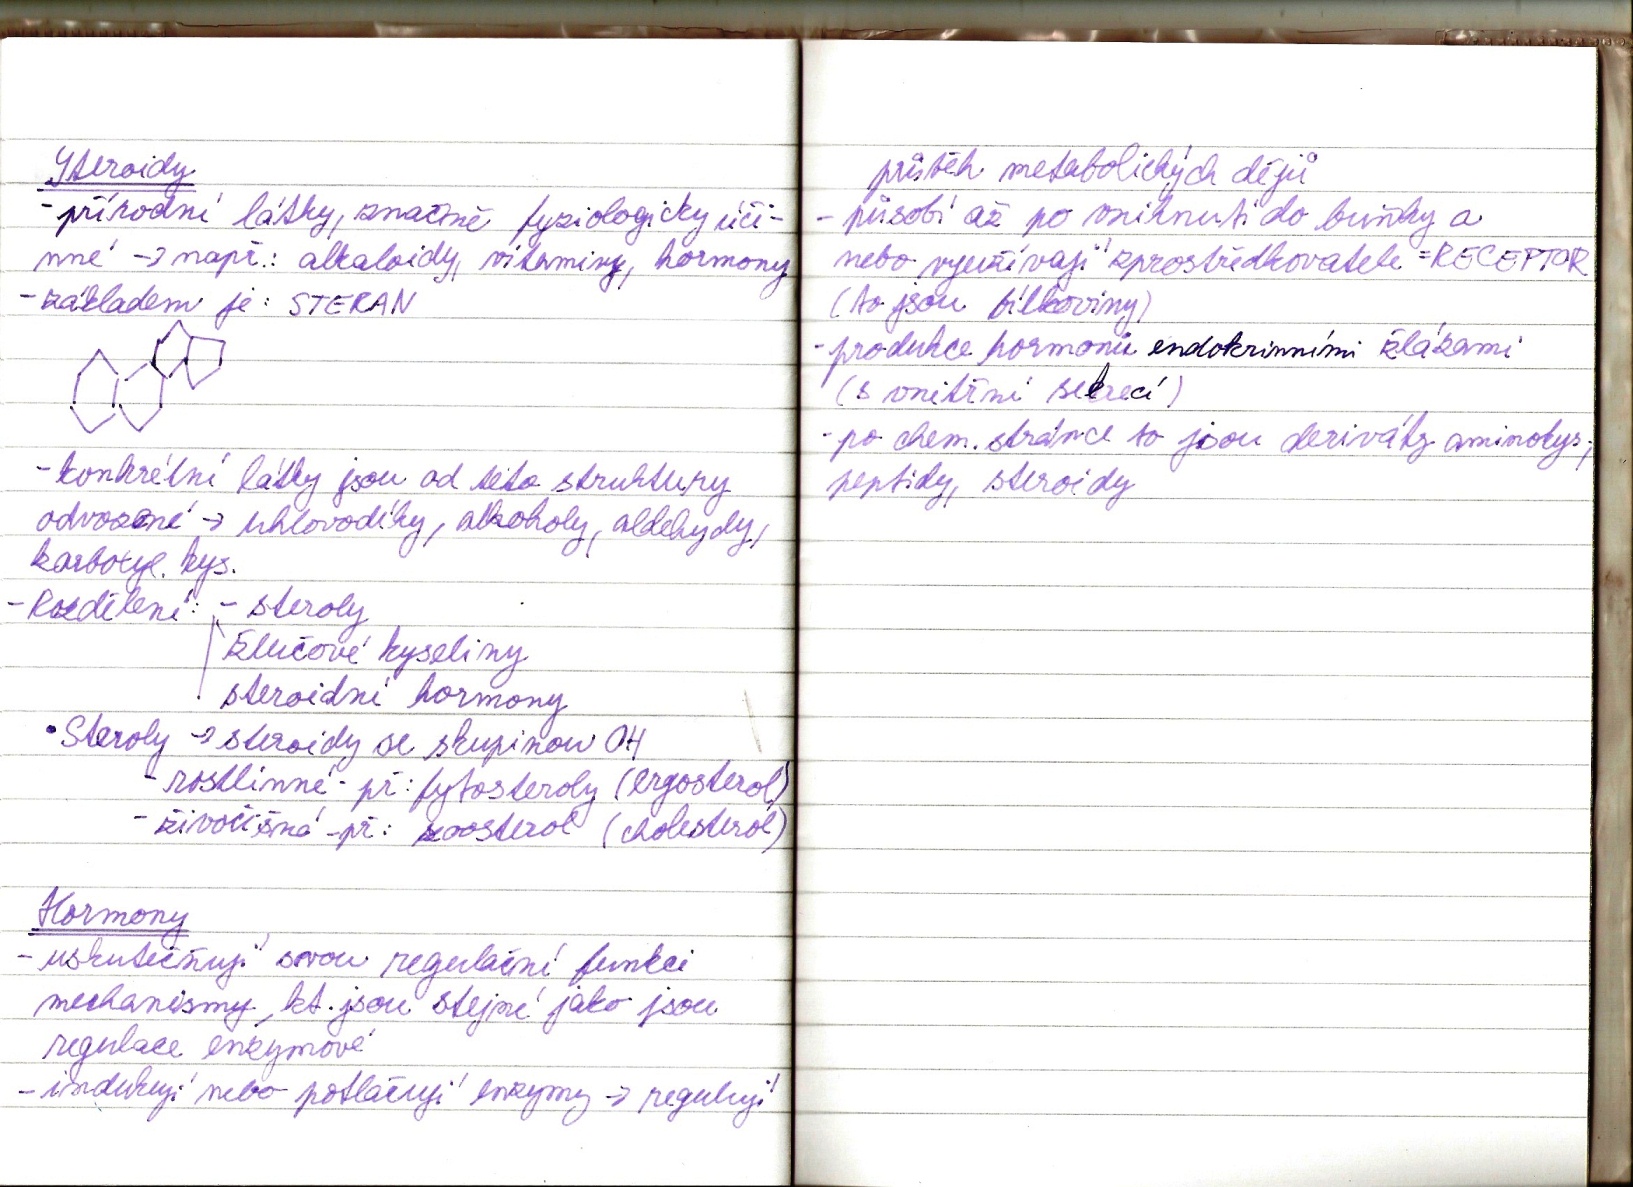 Steroidy
- přírodní látky, značně fyziologicky úči-
nné → např.: alkaloidy, vitaminy, hormony
- základem je: STERAN
- konkrétní látky jsou od této struktury
odvozené → uhlovodíky, alkoholy, aldehydy,
karboxyl. kys.
- Rozdělení: - steroly
žlučové kyseliny
steroidní hormony
• Steroly → steroidy se skupinou OH
- rostlinné - př: fytosteroly (ergosterol)
- živočišné - př: zoosterol (cholesterol)
Hormony
- uskutečňují svou regulační funkci
mechanismy, kt. jsou stejné jako jsou
regulace enzymové
- indukují nebo potlačují enzymy → regulují
průběh metabolických dějů
- působí až po vniknutí do buňky a
nebo využívají zprostředkovatele = RECEPTOR
(to jsou bílkoviny)
- produkce hormonů endokrinními žlázami
(s vnitřní sekrecí)
- po chem. stránce to jsou deriváty aminokys.,
peptidy, steroidy